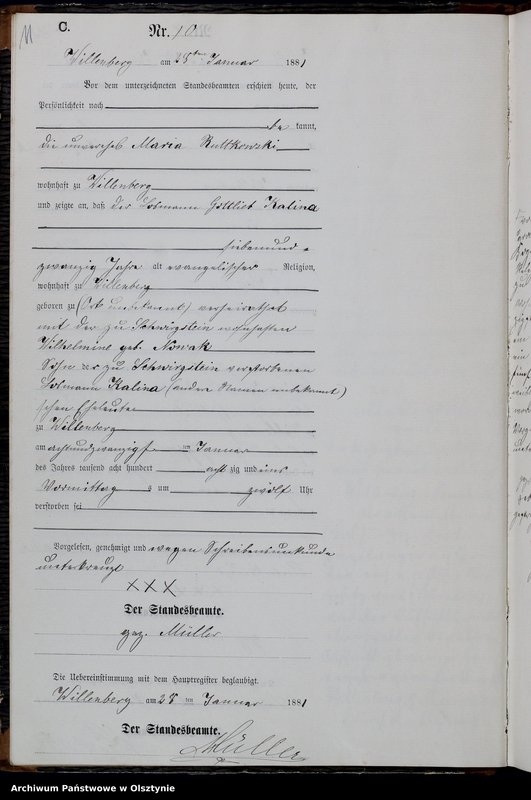 11
C.
Nr. 10
Willenberg am 28ten Januar 1881
Vor dem unterzeichneten Standesbeamten erschien heute, der
Persönlichkeit nach
be kannt,
die unverehel. Maria Ruttkowski
wohnhaft zu Willenberg
und zeigte an, daß der Losmann Gottlieb Kalina
siebenund =
zwanzig Jahre alt evangelischer Religion,
wohnhaft zu Willenberg
geboren zu (Ort unbekannt) verheirathet
mit der zu Schwirgstein wohnhaften
Wilhelmine geb. Nowak
Sohn der zu Schwirgstein verstorbenen
Losmann Kalina (andere Namen unbekannt)
schen Eheleute
zu Willenberg
am achtundzwanzigsten Januar
des Jahres tausend acht hundert acht zig und eins
Vormittag s um zwölf Uhr
verstorben sei
Vorgelesen, genehmigt und wegen Schreibensunkunde
unterkreuzt
XXX
Der Standesbeamte.
gez. Müller
Die Uebereinstimmung mit dem Hauptregister beglaubigt.
Willenberg am 28 ten Januar 1881
Der Standesbeamte.
Müller
Archiwum Państwowe w Olsztynie